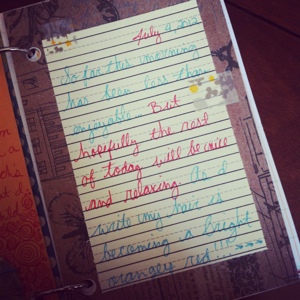 July 9, 2012
So far this morning
has been less than
enjoyable. But
hopefully the rest
of today will be nice
and relaxing. As I
write my hair is
becoming a bright
orangey red...